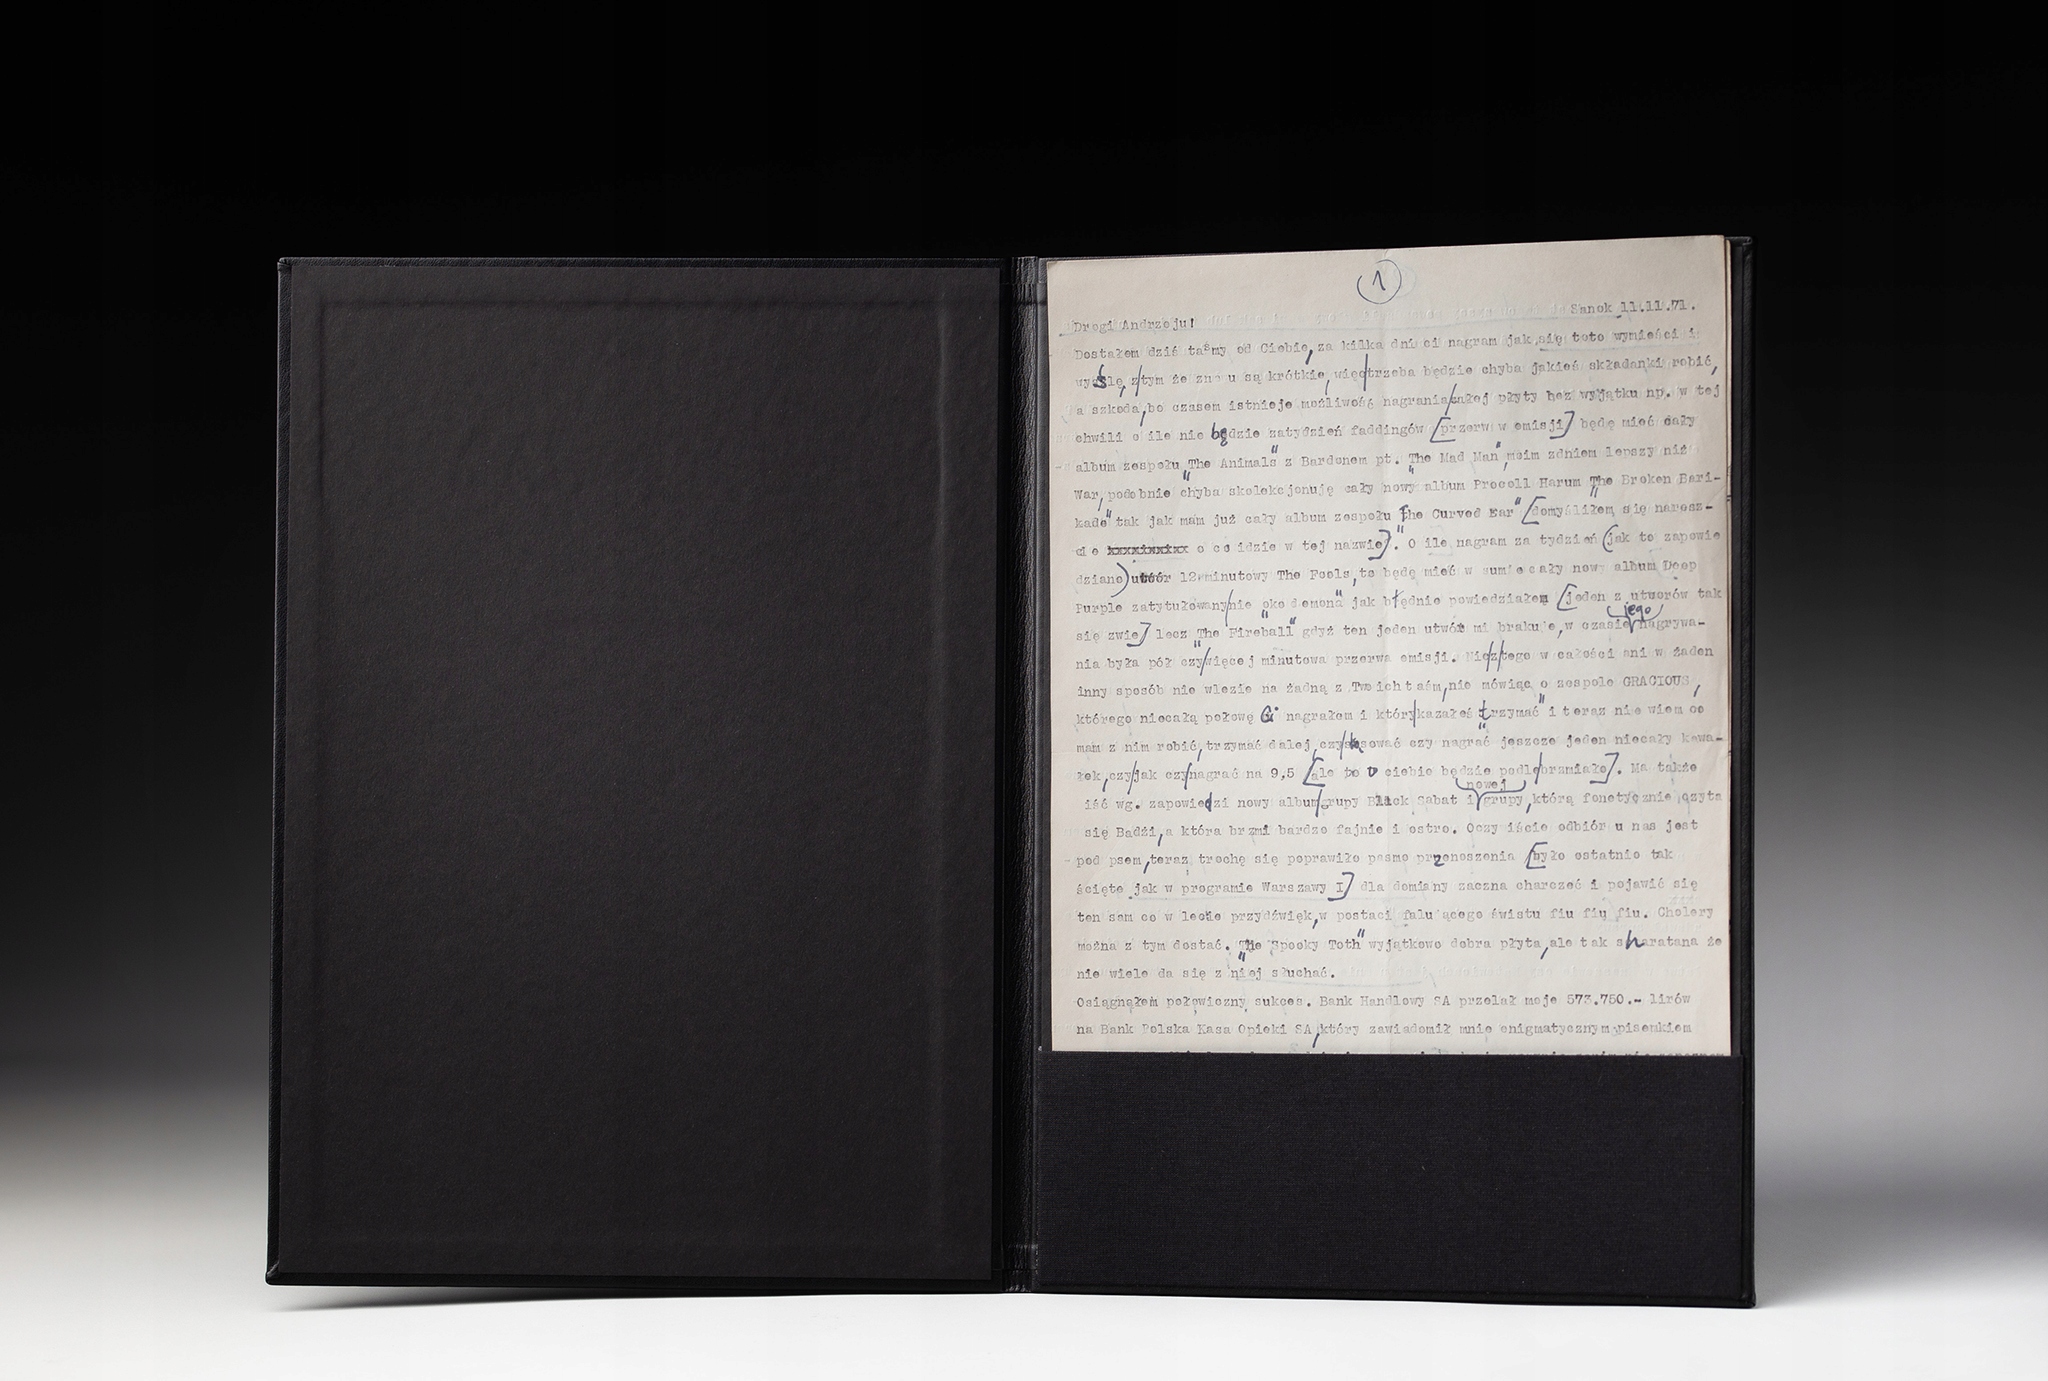 1
Sanok 11.11.71.
Drogi Andrzeju!
Dostałem dziś taśmy od Ciebie, za kilka dni ci nagram jak się toto wymieści i
wyślę, z tym że znowu są krótkie, więc trzeba będzie chyba jakieś składanki robić,
a szkoda, bo czasem istnieje możliwość nagrania całej płyty bez wyjątku np. w tej
chwili o ile nie będzie za tydzień faddingów [przerw w emisji] będę mieć cały
album zespołu "The Animals" z Bardonem pt. "The Mad Man", moim zdniem lepszy niż
War, podobnie chyba skolekcjonuję cały nowy album Procoll Harum "The Broken Bari-
kade" tak jak mam już cały album zespołu "The Curved Ear" [domyśliłem się naresz-
cie o co idzie w tej nazwie]. O ile nagram za tydzień (jak to zapowie
dziano) utwór 12-minutowy The Fools, to będę mieć w sumie cały nowy album Deep
Purple zatytułowany nie "oko demona" jak błędnie powiedziałem [jeden z utworów tak
się zwie] lecz "The Fireball" gdyż ten jeden utwór mi brakuje, w czasie jego nagrywa-
nia była pół czy więcej minutowa przerwa emisji. Nic z tego w całości ani w żaden
inny sposób nie wlezie na żadną z Twoich taśm, nie mówiąc o zespole GRACIOUS,
którego niecałą połowę Ci nagrałem i który kazałeś "trzymać" i teraz nie wiem co
mam z nim robić, trzymać dalej, czy skasować czy nagrać jeszcze jeden niecały kawa-
łek, czy jak czy nagrać na 9,5 [ale to u ciebie będzie podle brzmiało]. Ma także
iść wg. zapowiedzi nowy album grupy Black Sabat i nowej grupy, którą fonetycznie czyta
się Badżi, a która brzmi bardzo fajnie i ostro. Oczywiście odbiór u nas jest
pod psem, teraz trochę się poprawiło pasmo przenoszenia [było ostatnio tak
ścięte jak w programie Warszawy I] dla odmiany zaczna charczeć i pojawić się
ten sam co w lecie przydźwięk, w postaci falującego świstu fiu fiu fiu. Cholery
można z tym dostać. "The Spooky Toth" wyjątkowo dobra płyta, ale tak sharatana że
nie wiele da się z niej słuchać.
Osiągnąłem połowiczny sukces. Bank Handlowy SA przelał moje 573.750.- lirów
na Bank Polska Kasa Opieki SA, który zawiadomił mnie enigmatycznym pisemkiem